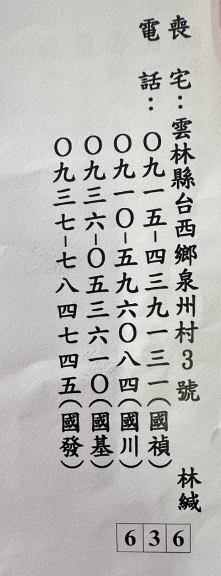 喪宅：雲林縣台西鄉泉州村3號
電話：０九一五－四三九一三一（國禎）
０九一０－五九六０八四（國川）
０九三六－０五三六一０（國基）
０九三七－七八四七四五（國發）
林緘
636